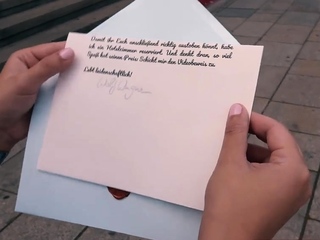 Damit ihr Euch anschließend richtig austoben könnt, habe
ich ein Hotelzimmer reserviert. Und denkt dran, so viel
Spaß hat seinen Preis: Schickt mir den Videobeweis zu.
Lebt leidenschaftlich!